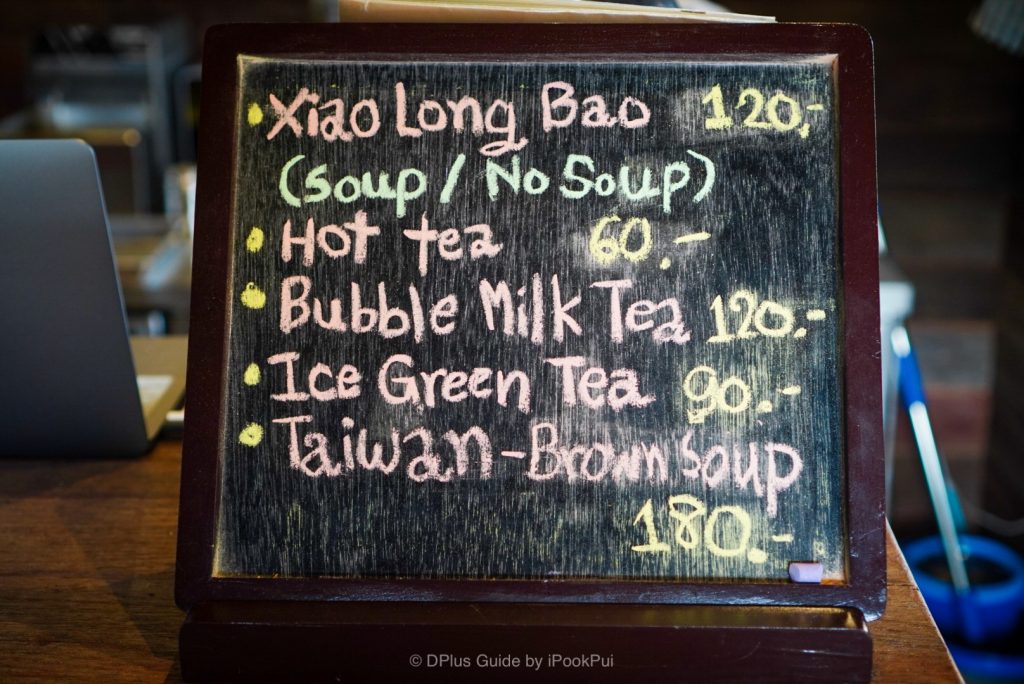 Xiao Long Bao 120.-
(Soup / No Soup)
Hot tea 60.-
Bubble Milk Tea 120.-
Ice Green Tea 90.-
Taiwan-Brown Soup
180.-
© DPlus Guide by iPookPui